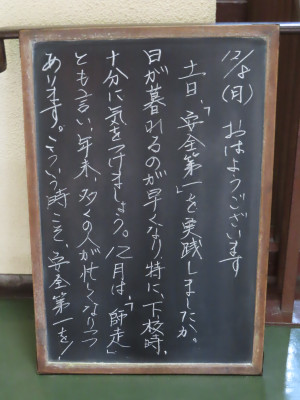 12/8(月) おはようございます
土日、「安全第一」を実践しましたか。
日が暮れるのが早くなり、特に、下校時、
十分に気をつけましょう。12月は、「師走」
とも言い、年末、多くの人が忙しくなりつつ
あります。こういう時こそ、安全第一を!